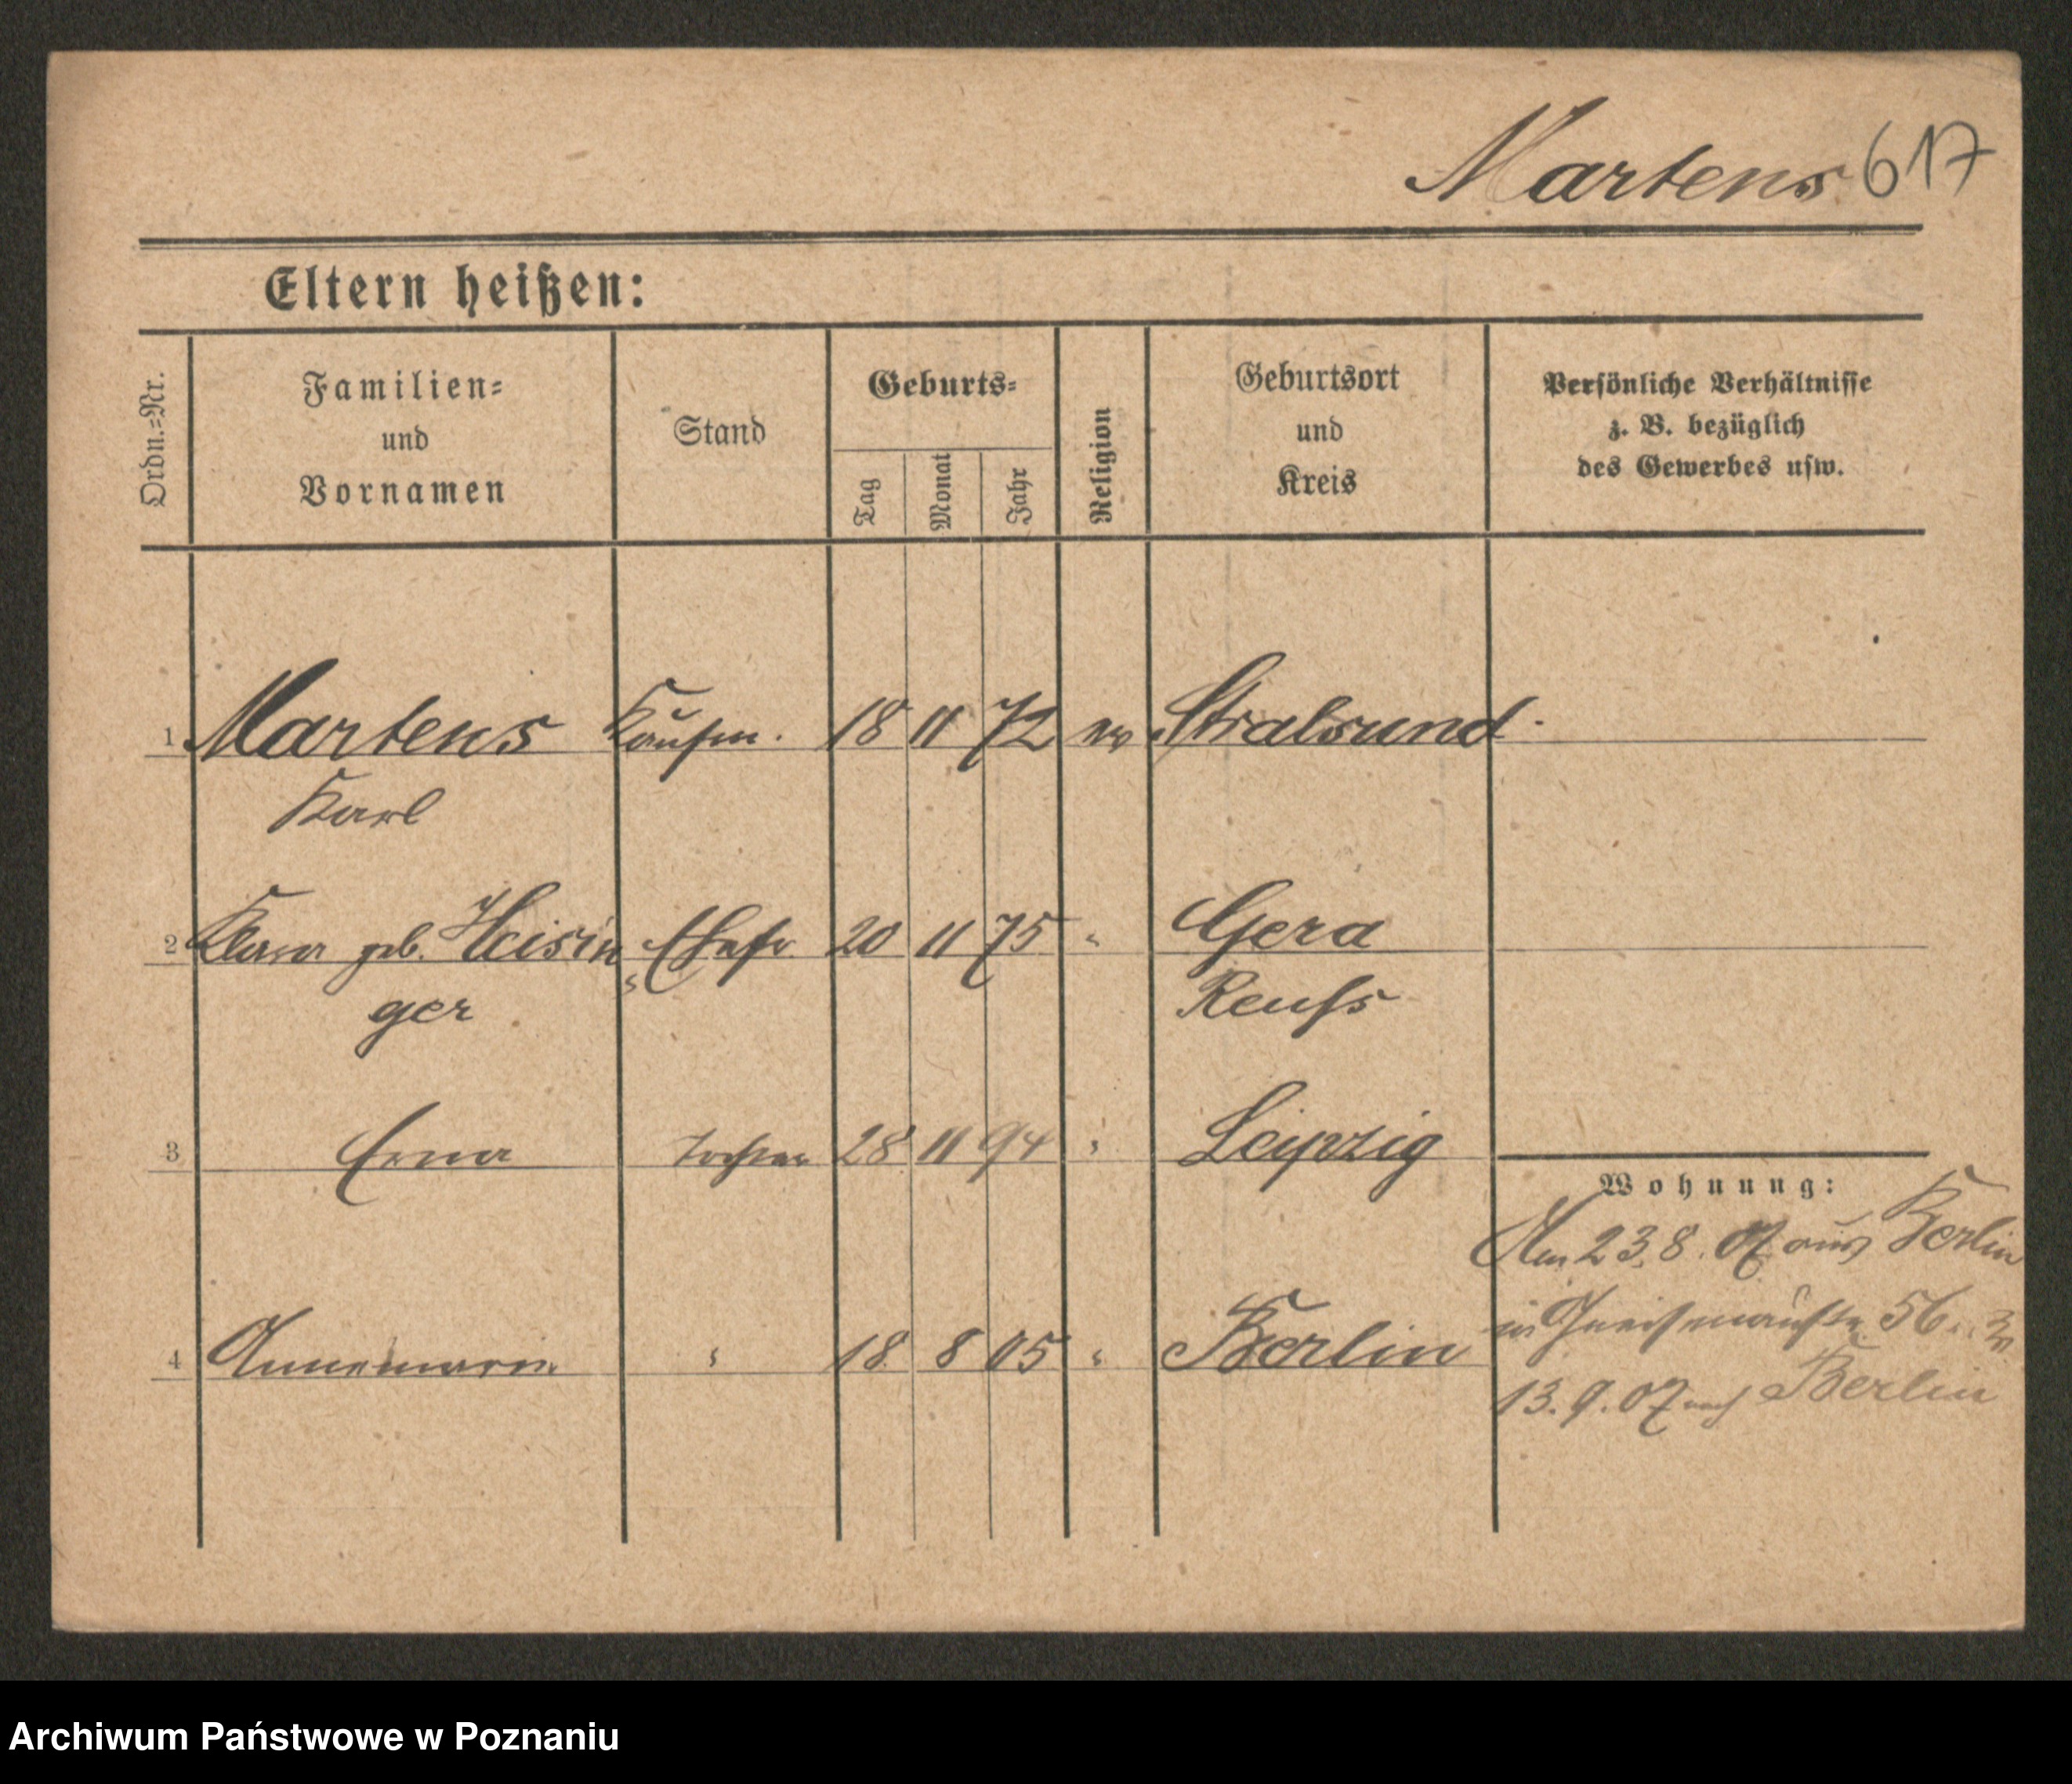 Martens 617
Eltern heißen:
Ordn.-Nr.
Familien-
und
Vornamen
Stand
Geburts-
Tag
Monat
Jahr
Religion
Geburtsort
und
Kreis
Persönliche Verhältnisse
z. B. bezüglich
des Gewerbes usw.
1 Martens Kaufm. 18 11 72 ev Stralsund.
Karl
2 Klara geb. Heisin Ehefr. 20 11 75 " Gera
ger Reuss
3 Erna Tochter 28 11 94 " Leipzig
Wohnung:
Am 23.8.07 aus Berlin
in Gneisenaustr. 56.
4 Annemarie " 18 8 05 " Berlin
13.9.07 nach Berlin
Archiwum Państwowe w Poznaniu